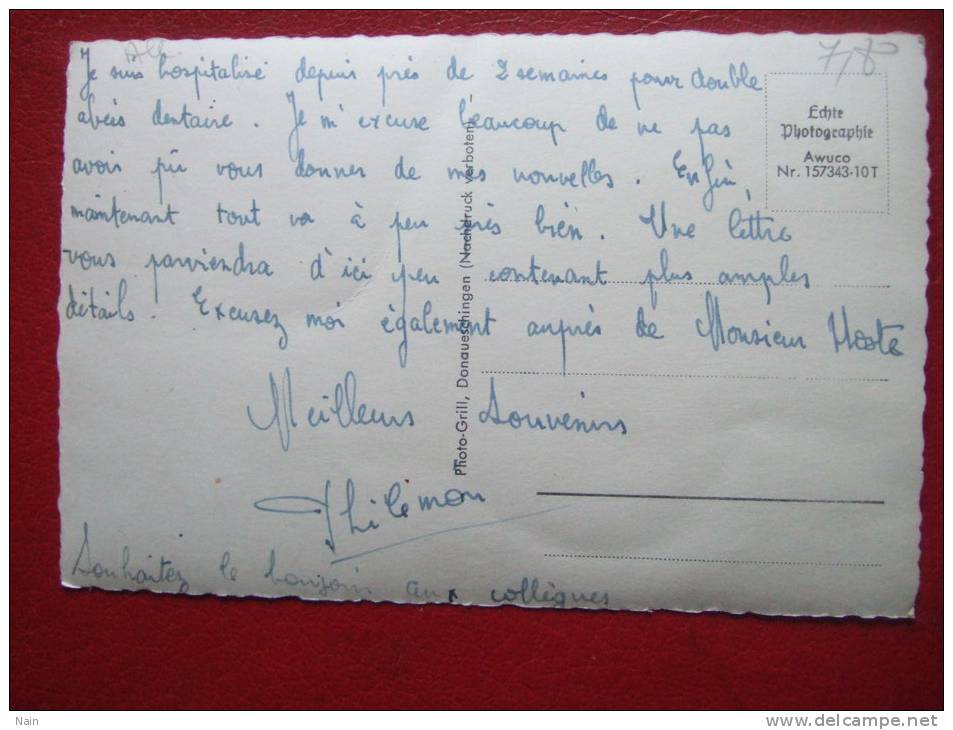 All.
7,80
Je suis hospitalisé depuis près de 2 semaines pour double
abcès dentaire. Je m'excuse beaucoup de ne pas
avoir pû vous donner de mes nouvelles. Enfin,
maintenant tout va à peu près bien. Une lettre
vous parviendra d'ici peu contenant plus amples
détails. Excusez moi également auprès de Monsieur
Meilleurs Souvenirs
Philémon
Souhaitez le bonjour aux collègues
Echte
Photographie
Awuco
Nr. 157343-10T
Photo-Grill, Donaueschingen (Nachdruck verboten)
Nain
www.delcampe.net